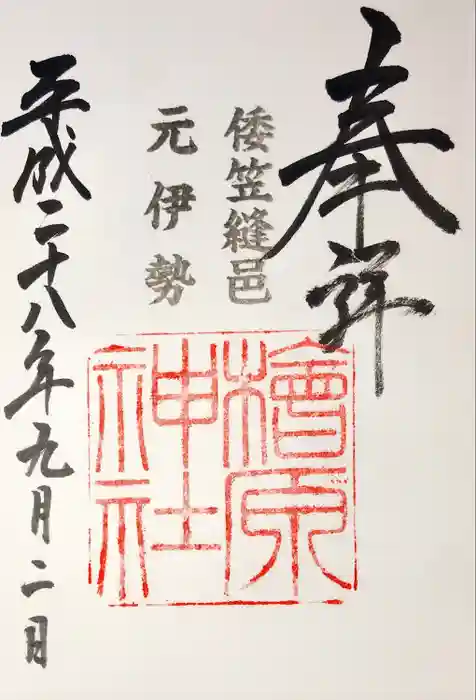 奉拝
倭笠縫邑
元伊勢
檜原神社
平成二十八年九月二日